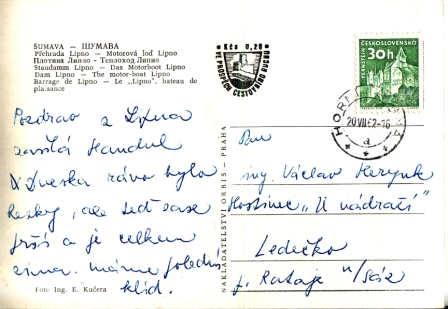 ŠUMAVA — ШУМАВА
Přehrada Lipno — Motorová loď Lipno
Плотина Липно - Теплоход Липно
Staudamm Lipno — Das Motorboot Lipno
Dam Lipno — The motor-boat Lipno
Barrage de Lipno — Le „Lipno“, bateau de
plaisance
Kčs 0,20
VE PROSPĚCH CESTOVNÍHO RUCHU
ČESKOSLOVENSKO
30h
PERNŠTEJN
20.VII.62-16
a
Pozdrav z Lipna
zasílá Handul
Dneska ráno bylo
hezky, ale teď zase
prší a je celkem
zima. máme poledni
klid.
Foto Ing. E. Kučera
NAKLADATELSTVÍ ORBIS — PRAHA
Pan
ing. Václav
Hostinec „U nádraží“
Ledečko
p. Rataje n/Sáz